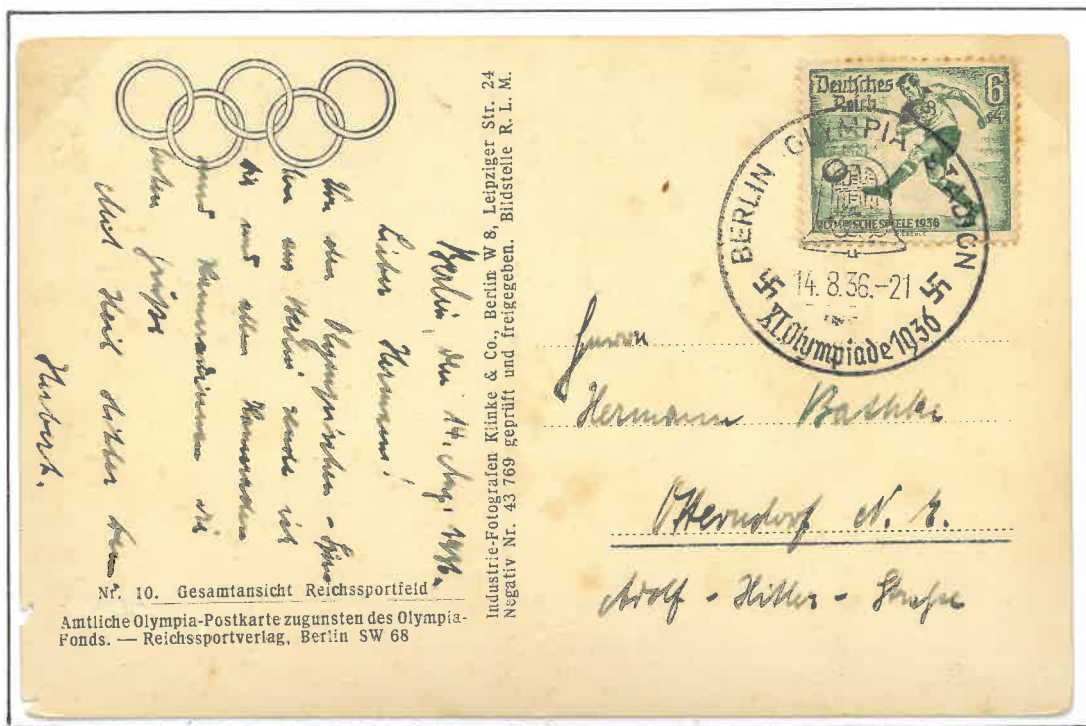 Berlin, den 14. Aug. 1936.
Lieber Hermann!
Von den Olympischen-Spie
len aus Berlin sende ich
dir und allen Kameraden
und Kameradinnen die
besten Grüße
Mit Heil Hitler dein
Herbert.
Nr. 10. Gesamtansicht Reichssportfeld
Amtliche Olympia-Postkarte zugunsten des Olympia-
Fonds. — Reichssportverlag, Berlin SW 68
Industrie-Fotografen Klinke & Co., Berlin W 8, Leipziger Str. 24
Negativ Nr. 43 769 geprüft und freigegeben. Bildstelle R. L. M.
Deutsches
Reich
6
+4
OLYMPISCHE SPIELE 1936
BERLIN OLYMPIA-STADION
14. 8. 36.-21
XI. Olympiade 1936
Herrn
Hermann
Otterndorf N. E.
Adolf - Hitler - Straße